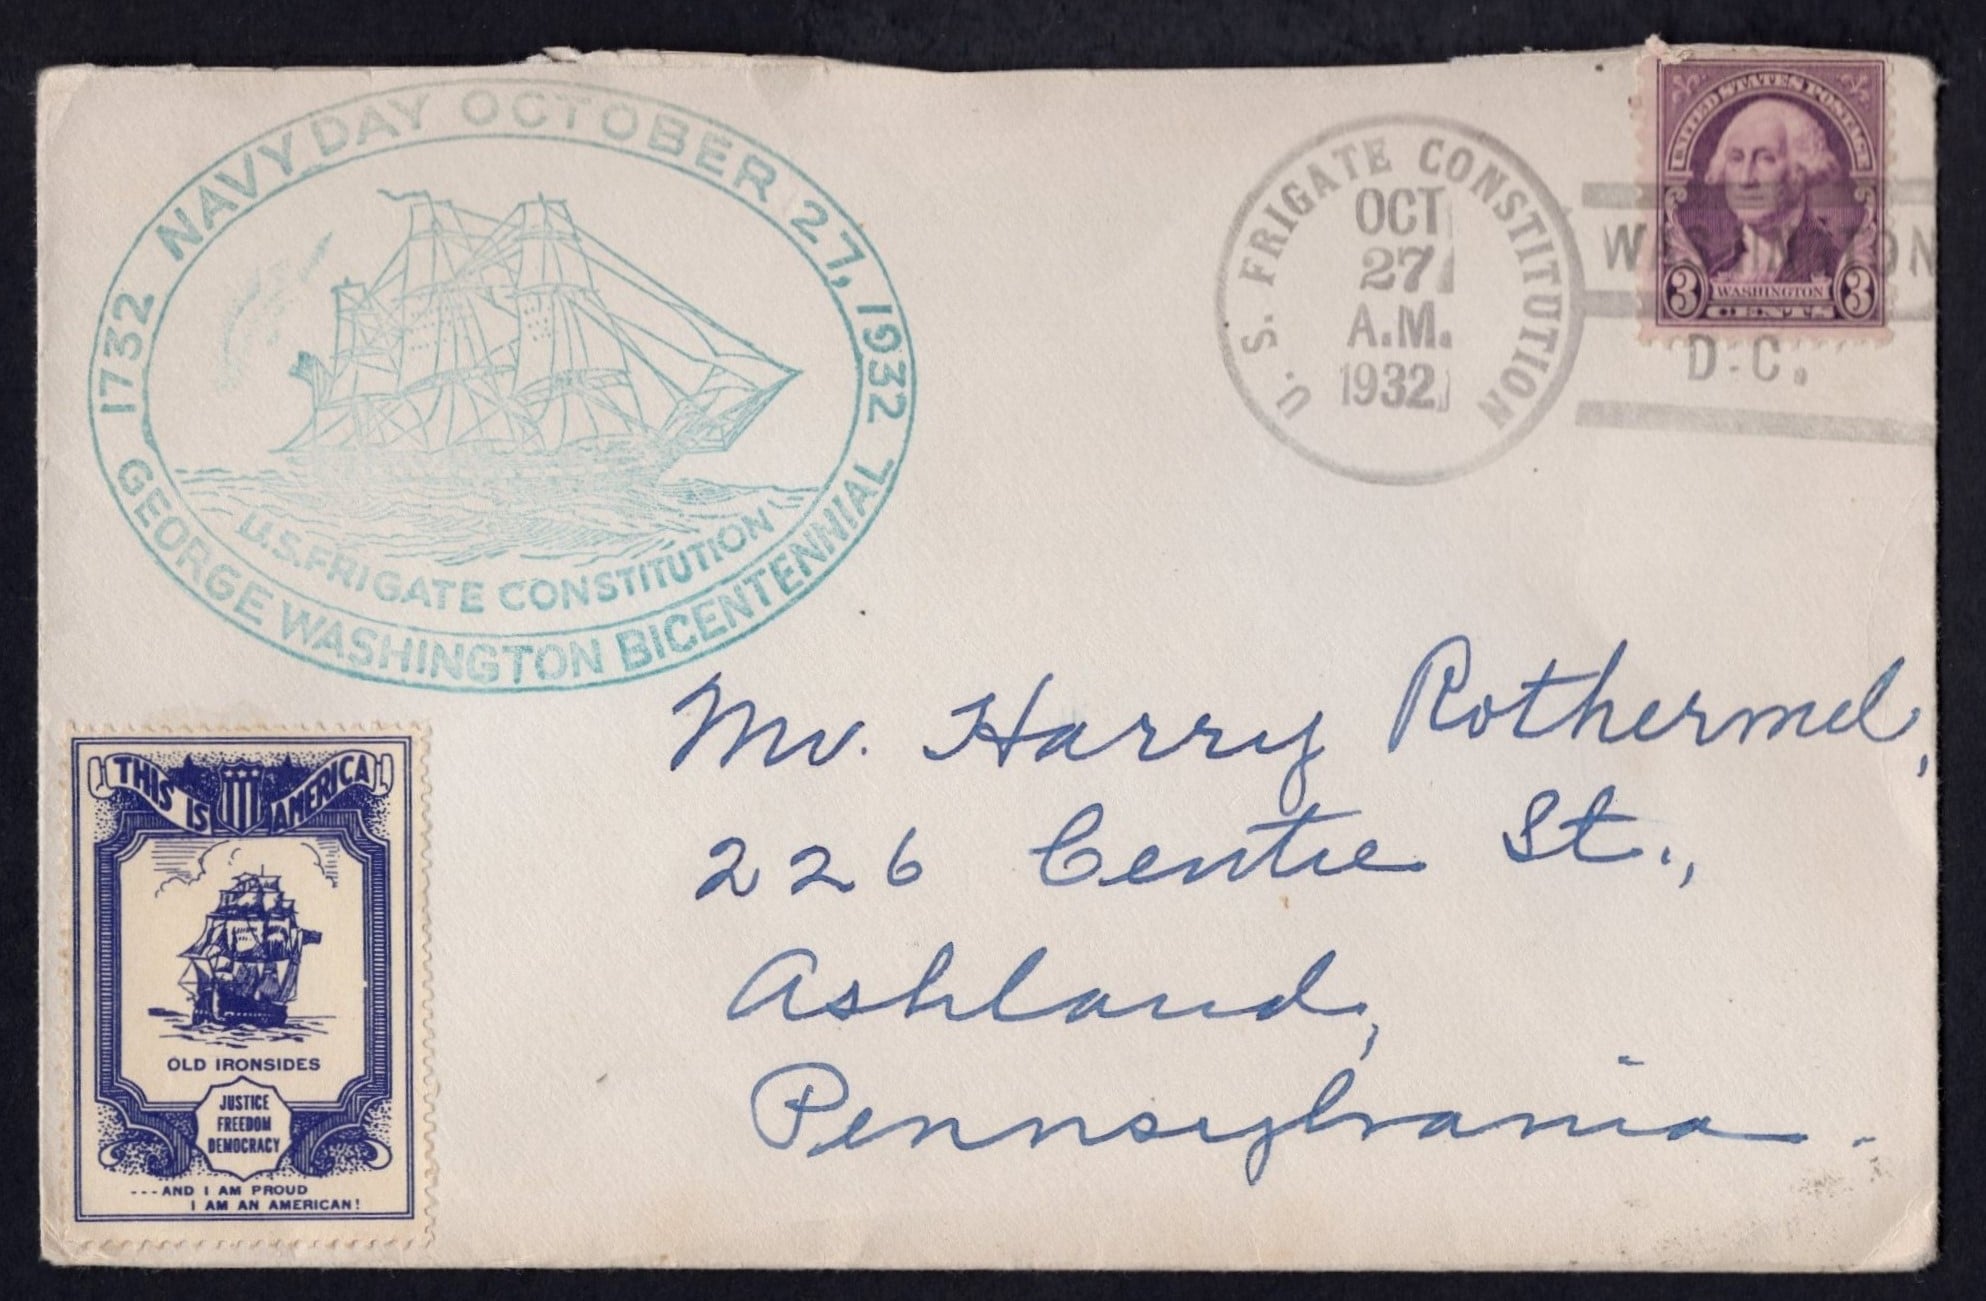 NAVY DAY OCTOBER 27, 1932
1732
GEORGE WASHINGTON BICENTENNIAL
U.S. FRIGATE CONSTITUTION
U. S. FRIGATE CONSTITUTION
OCT
27
A.M.
1932
WASHINGTON
D.C.
UNITED STATES POSTAGE
3 WASHINGTON 3
CENTS
Mr. Harry Rothermel,
226 Centre St.,
Ashland,
Pennsylvania.
THIS IS AMERICA
OLD IRONSIDES
JUSTICE
FREEDOM
DEMOCRACY
---AND I AM PROUD
I AM AN AMERICAN!